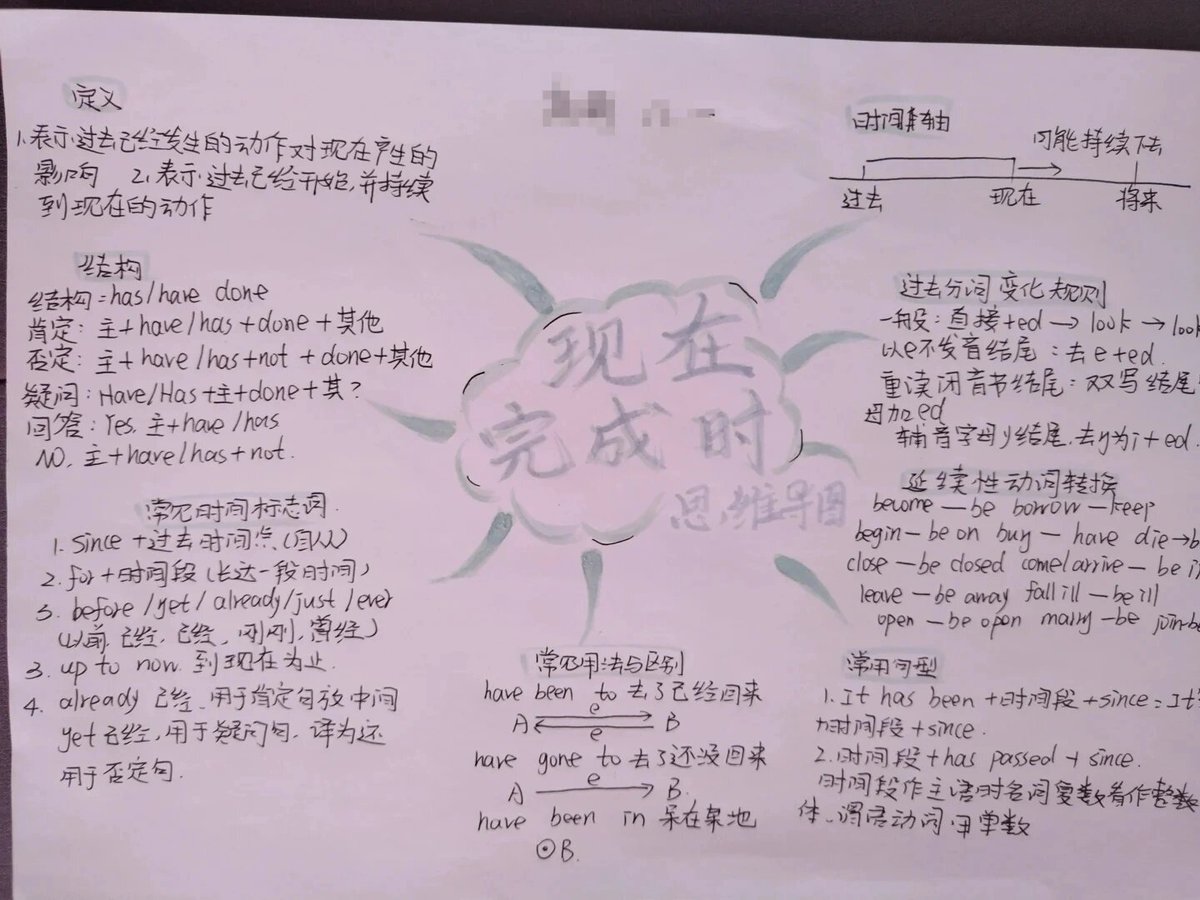 定义
1.表示过去已经发生的动作对现在产生的
影响 2.表示过去已经开始,并持续
到现在的动作
结构
结构=has/have done
肯定:主+have/has+done+其他
否定:主+have/has+not+done+其他
疑问:Have/Has+主+done+其?
回答:Yes,主+have/has
NO,主+have/has+not.
常见时间标志词
1. since+过去时间点(自从)
2. for+时间段(长达一段时间)
3. before/yet/already/just/ever
(以前,已经,已经,刚刚,曾经)
3. up to now 到现在为止.
4. already 已经、用于肯定句放中间
yet已经,用于疑问句,译为还
用于否定句.
现在
完成时
思维导图
常见用法与区别
have been to 去了已经回来
A e e B
have gone to 去了还没回来
A e B.
have been in 呆在某地
B.
时间轴
可能持续下去
过去 现在 将来
过去分词变化规则
一般:直接+ed→look→look
以e不发音结尾:去e+ed.
重读闭音节结尾:双写结尾
母加ed
辅音字母y结尾,去y为i+ed.
延续性动词转换
become—be borrow—keep
begin—be on buy—have die→b
close—be closed come/arrive—be i
leave—be away fall ill—be ill
open—be open marry—be join-be
常用句型
1.It has been+时间段+since=It
时间段+since.
2.时间段+has passed+since.
时间段作主语时名词复数看作整
体、谓语动词用单数